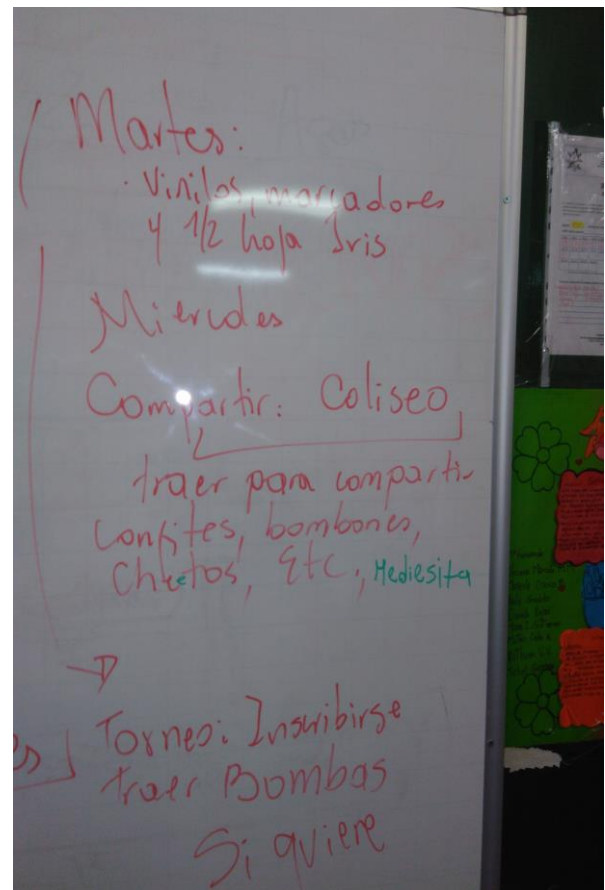 Martes:
· Vinilos, marcadores
y 1/2 hoja Iris
Miercoles
Compartir: Coliseo
traer para compartir
Confites, bombones,
Chetos, Etc., Mediesita
Torneo: Inscribirse
traer Bombas
Si quiere